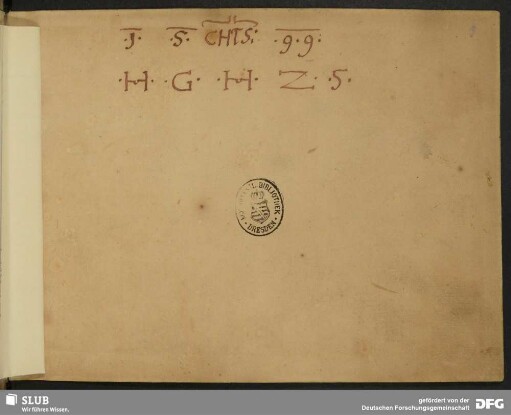 ·J· ·S· CHTS: ·9·9·
·H· G· ·H· Z· S·
BIBLIOTHEK
DRESDEN
SLUB
Wir führen Wissen.
gefördert von der
Deutschen Forschungsgemeinschaft
DFG